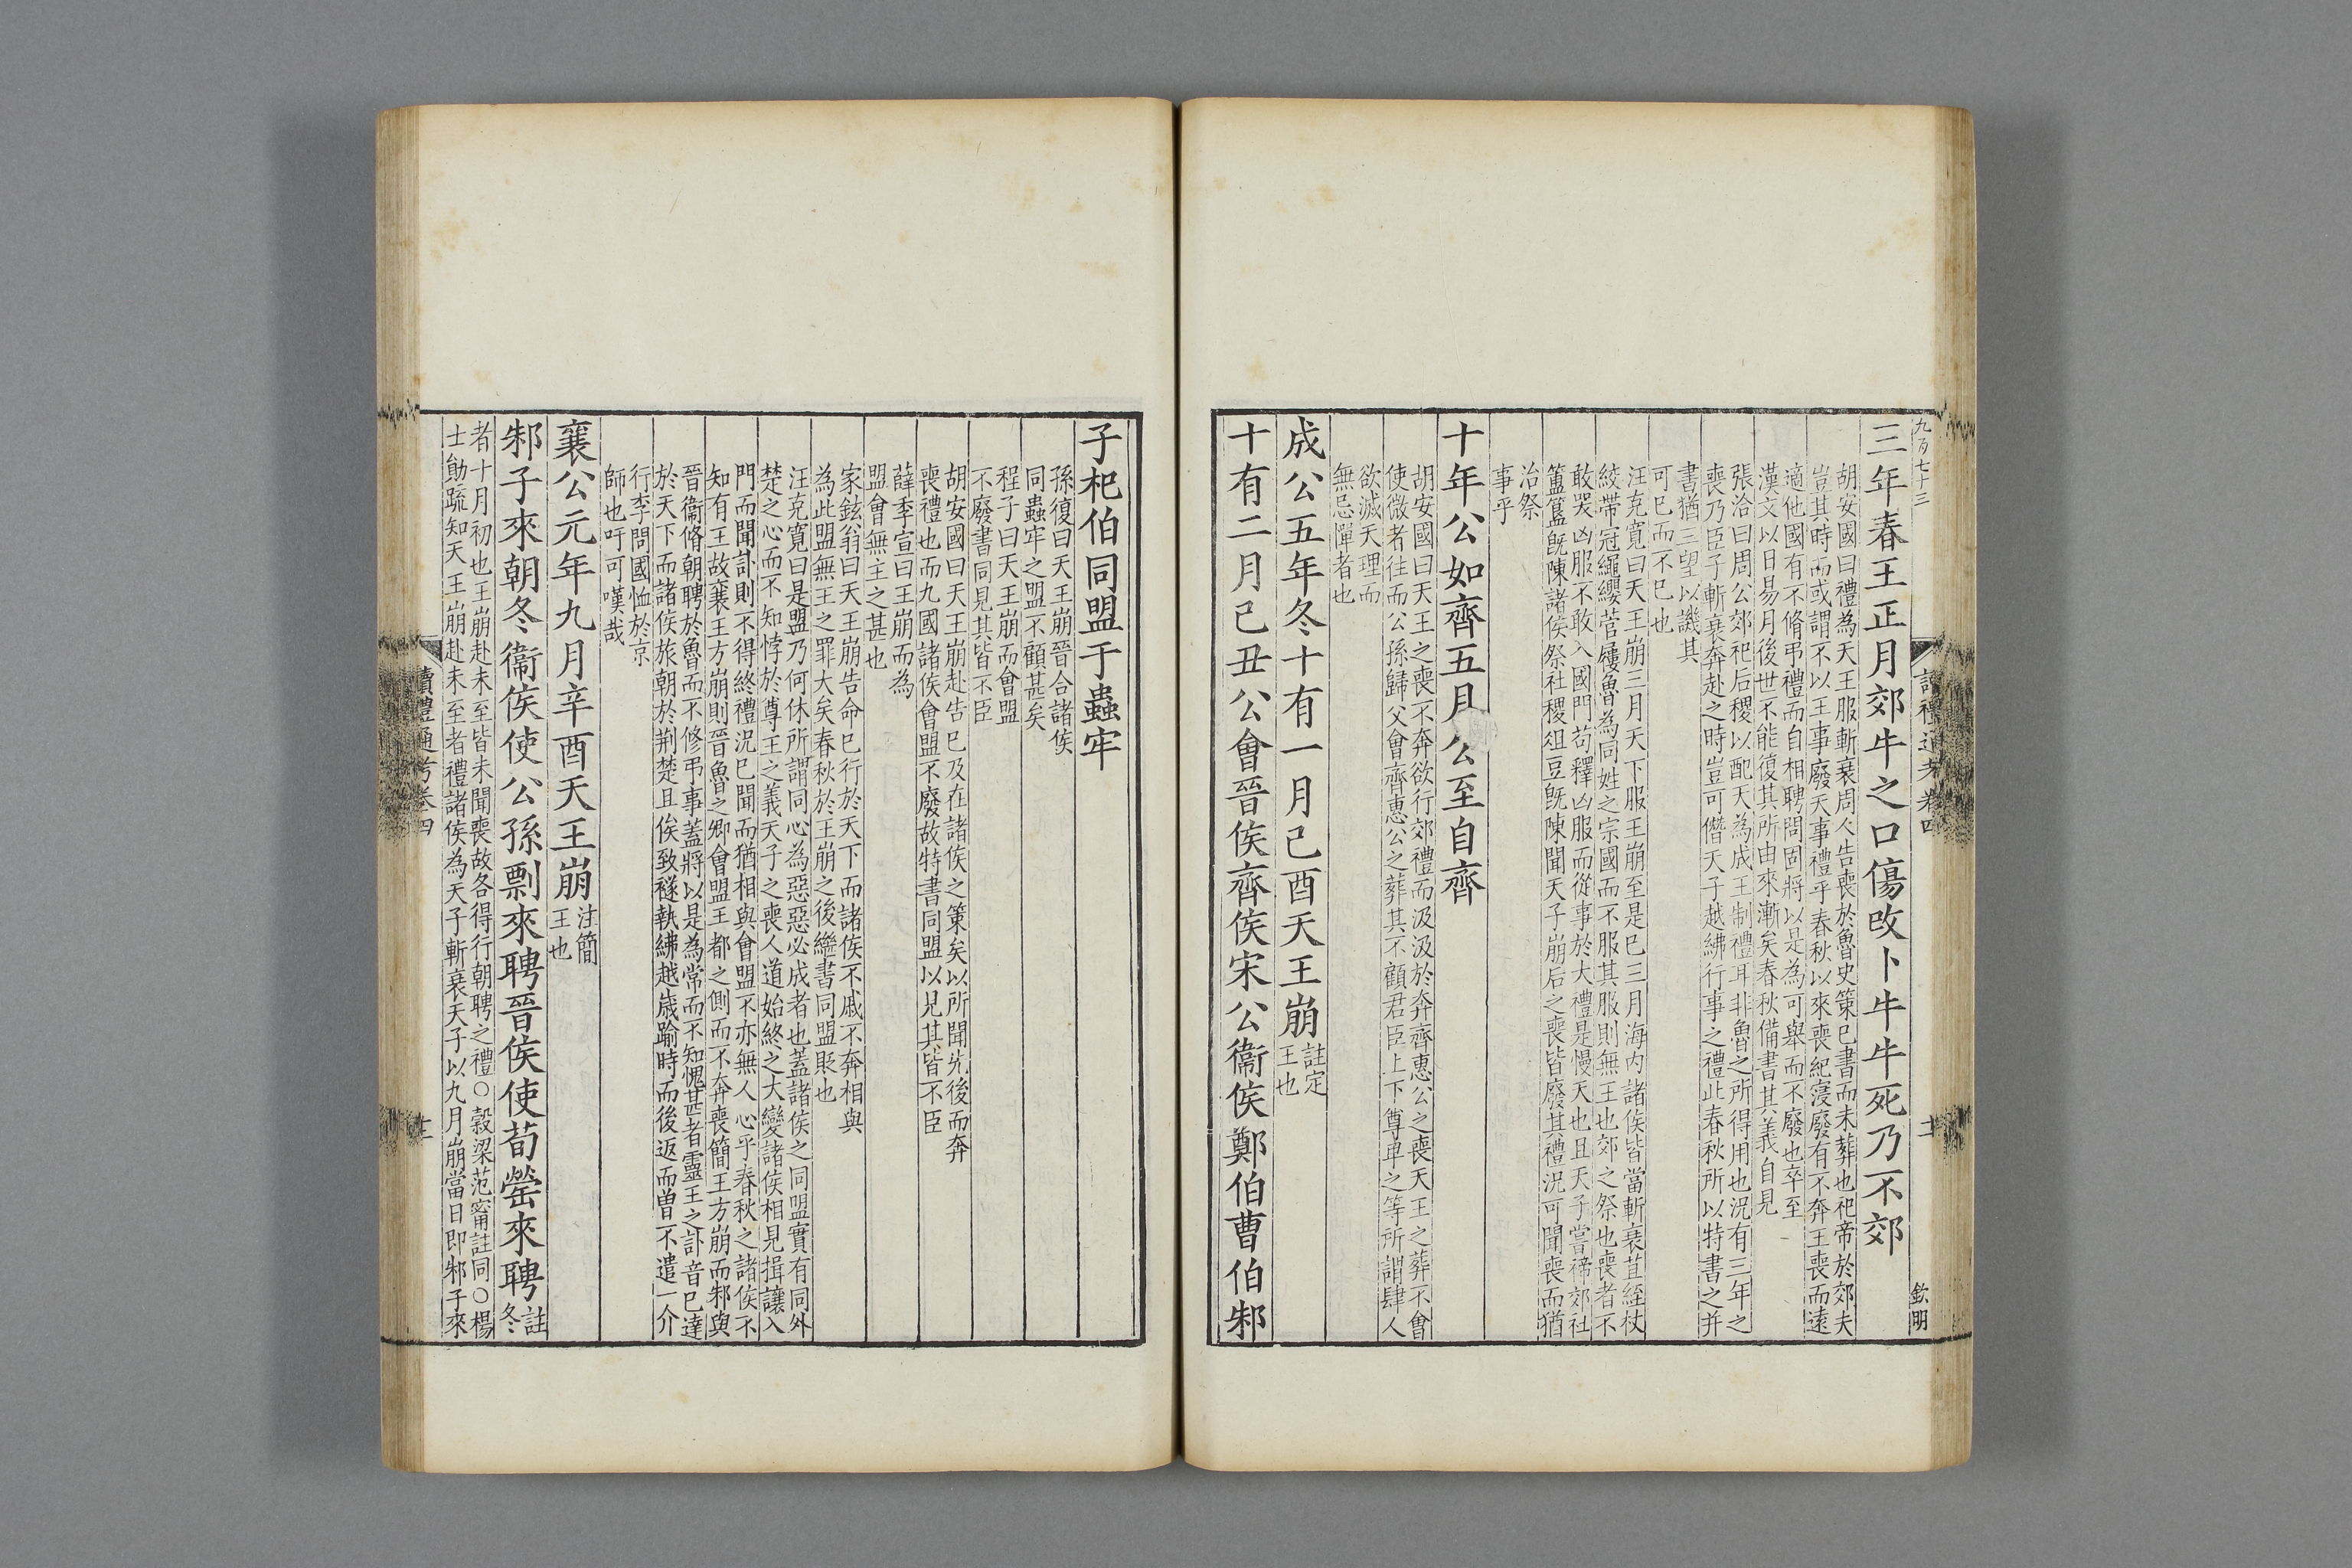 九百七十三
讀禮通考卷四
十二
欽明
三年春王正月郊牛之口傷改卜牛牛死乃不郊
胡安國曰禮為天王服斬衰周人告喪於魯史策已書而未葬也祀帝於郊夫
豈其時而或謂不以王事廢天事禮乎春秋以來喪紀寖廢有不奔王喪而遠
適他國有不脩弔禮而自相聘問固將以是為可舉而不廢也卒至
漢文以日易月後世不能復其所由來漸矣春秋備書其義自見
張洽曰周公郊祀后稷以配天為成王制禮耳非魯之所得用也況有三年之
喪乃臣子斬衰奔赴之時豈可僭天子越紼行事之禮此春秋所以特書之并
書猶三望以譏其
可已而不已也
汪克寬曰天王崩三月天下服王崩至是已三月海内諸侯皆當斬衰苴絰杖
絞帶冠繩纓菅屨魯為同姓之宗國而不服其服則無王也郊之祭也喪者不
敢哭凶服不敢入國門苟釋凶服而從事於大禮是慢天也且天子嘗禘郊社
簠簋旣陳諸侯祭社稷俎豆旣陳聞天子崩后之喪皆廢其禮況可聞喪而猶
治祭
事乎
十年公如齊五月公至自齊
胡安國曰天王之喪不奔欲行郊禮而汲汲於奔齊惠公之喪天王之葬不會
使微者往而公孫歸父會齊惠公之葬其不顧君臣上下尊卑之等所謂肆人
欲滅天理而
無忌憚者也
成公五年冬十有一月己酉天王崩註定
王也
十有二月己丑公會晉侯齊侯宋公衞侯鄭伯曹伯邾
子杞伯同盟于蟲牢
孫復曰天王崩晉合諸侯
同蟲牢之盟不顧甚矣
程子曰天王崩而會盟
不廢書同見其皆不臣
胡安國曰天王崩赴告已及在諸侯之策矣以所聞先後而奔
喪禮也而九國諸侯會盟不廢故特書同盟以見其皆不臣
薛季宣曰王崩而為
盟會無主之甚也
家鉉翁曰天王崩告命已行於天下而諸侯不戚不奔相與
為此盟無王之罪大矣春秋於王崩之後繼書同盟貶也
汪克寬曰是盟乃何休所謂同心為惡惡必成者也蓋諸侯之同盟實有同外
楚之心而不知悖於尊王之義天子之喪人道始終之大變諸侯相見揖讓入
門而聞訃則不得終禮況已聞而猶相與會盟不亦無人心乎春秋之諸侯不
知有王故襄王方崩則晉魯之卿會盟王都之側而不奔喪簡王方崩而邾與
晉衞脩朝聘於魯而不修弔事蓋將以是為常而不知愧甚者靈王之訃音已達
於天下而諸侯旅朝於荆楚且俟致襚執紼越歲踰時而後返而曾不遣一介
行李問國恤於京
師也吁可嘆哉
襄公元年九月辛酉天王崩注簡
王也
邾子來朝冬衞侯使公孫剽來聘晉侯使荀罃來聘註
冬
者十月初也王崩赴未至皆未聞喪故各得行朝聘之禮○穀梁范甯註同○楊
士勛疏知天王崩赴未至者禮諸侯為天子斬衰天子以九月崩當日即邾子來
讀禮通考卷四